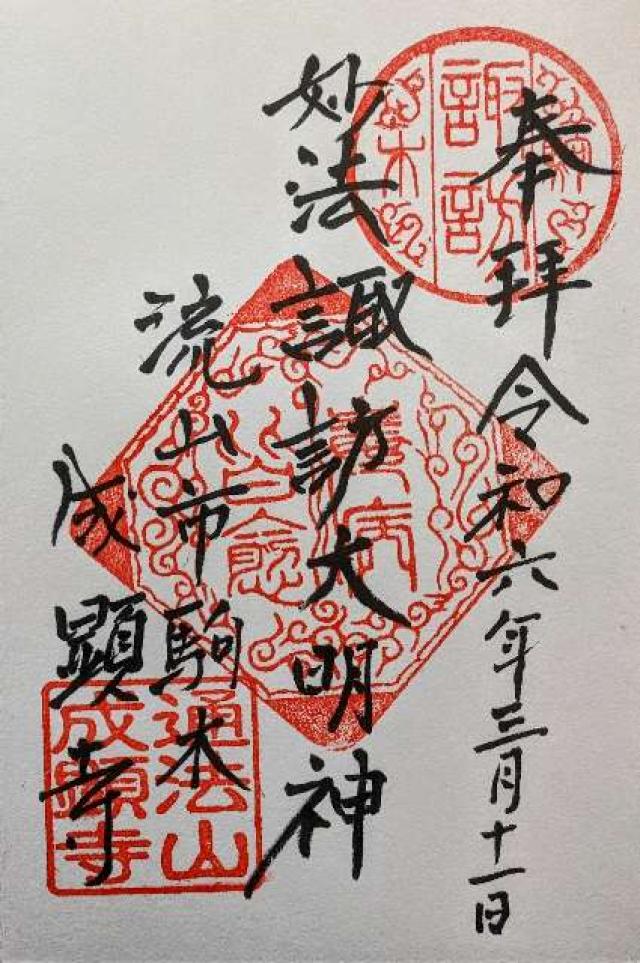 奉拝 令和六年三月十一日
妙法諏訪大明神
流山市駒木
成顕寺
諏訪
木
病
愈
通法山
成顕寺